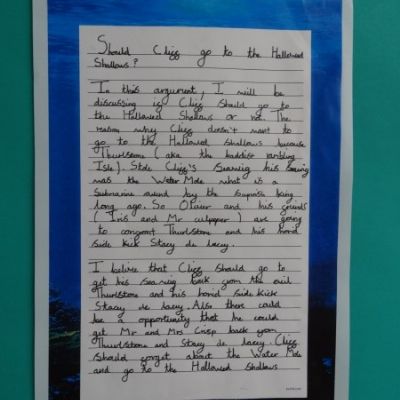 Should Cliff go to the Hallowed
Shallows?
In this argument, I will be
discussing if Cliff Should go to
the Hallowed Shallows or not. The
reason why Cliff doesn't want to
go to the Hallowed Shallows because
Thurlstone (aka the baddist rambling
Isle). Stole Cliff's Seawig his
was the Water Mole what is a
Submarine owned by the Sunposh being
long ago. So Oliver and his friends
(Iris and Mr culpeper) are going
to confront Thurlstone and his horid
Side kick Stacey de lacey.
I belive that Cliff Should go to
get his Sea wig back from the evil
Thurlstone and his horid Side Kick
Stacey de lacey. Also there could
be a opportunity that he could
get Mr and Mrs Crisp back from
Thurlstone and Stacey de lacey. Cliff
Should forget about the Water Mole
and go to the Hallowed Shallows